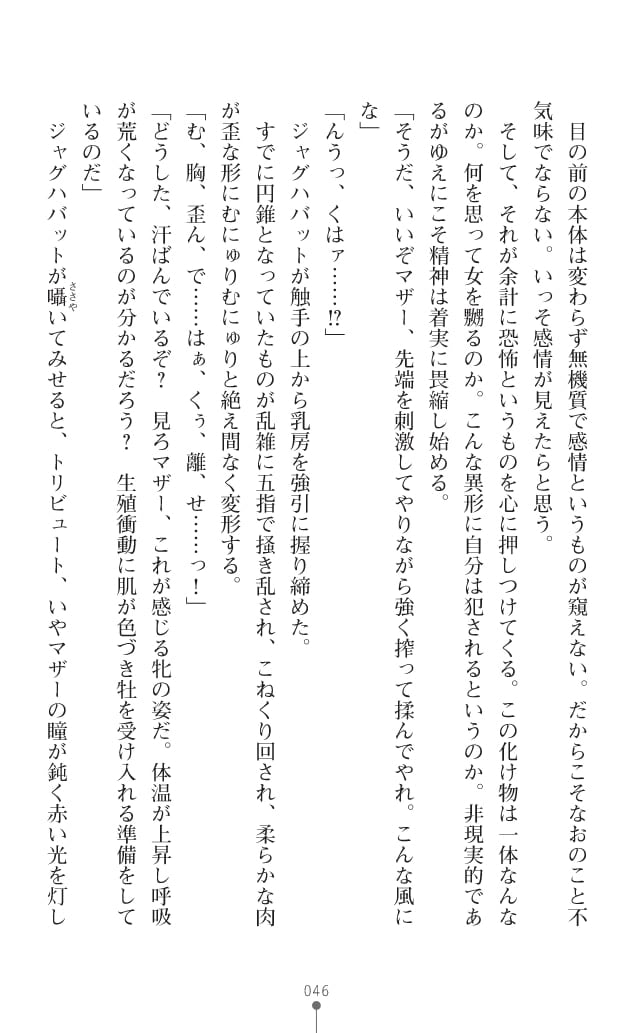 目の前の本体は変わらず無機質で感情というものが窺えない。だからこそなおのこと不
気味でならない。いっそ感情が見えたらと思う。
そして、それが余計に恐怖というものを心に押しつけてくる。この化け物は一体なんな
のか。何を思って女を嬲るのか。こんな異形に自分は犯されるというのか。非現実的であ
るがゆえにこそ精神は着実に畏縮し始める。
「そうだ、いいぞマザー、先端を刺激してやりながら強く搾って揉んでやれ。こんな風に
な」
「んうっ、くはァ……!?」
ジャグハバットが触手の上から乳房を強引に握り締めた。
すでに円錐となっていたものが乱雑に五指で掻き乱され、こねくり回され、柔らかな肉
が歪な形にむにゅりむにゅりと絶え間なく変形する。
「む、胸、歪ん、で……はぁ、くぅ、離、せ……っ！」
「どうした、汗ばんでいるぞ？　見ろマザー、これが感じる牝の姿だ。体温が上昇し呼吸
が荒くなっているのが分かるだろう？　生殖衝動に肌が色づき牡を受け入れる準備をして
いるのだ」
ジャグハバットが囁いてみせると、トリビュート、いやマザーの瞳が鈍く赤い光を灯し
ささや
046